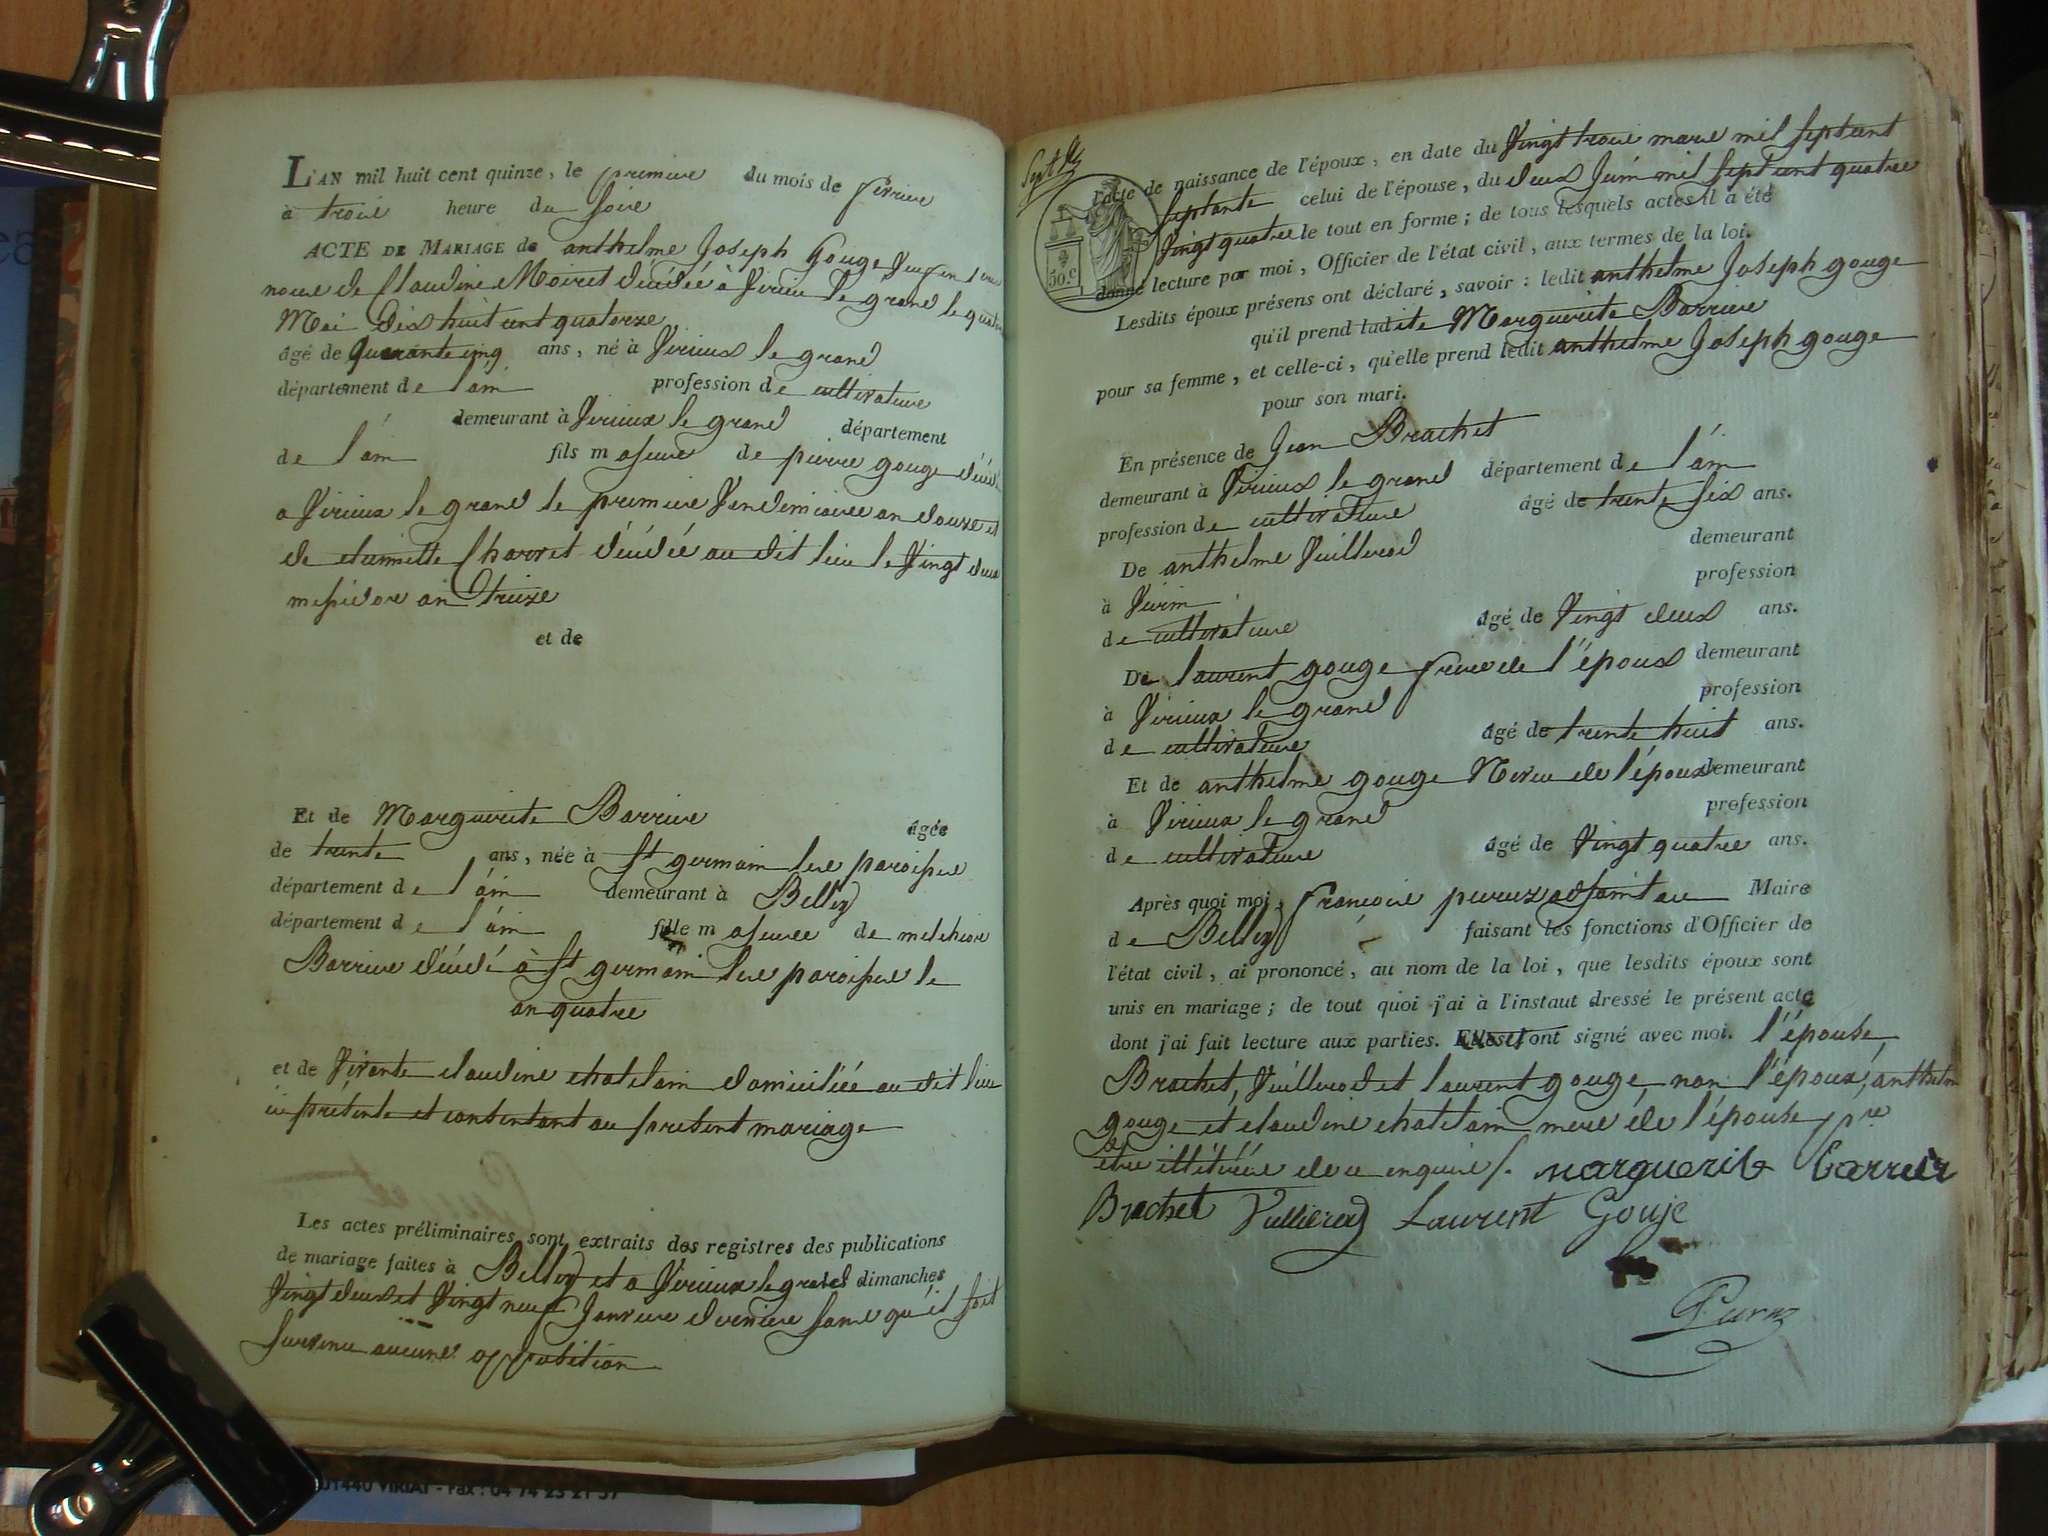 L'AN mil huit cent quinze, le premiere du mois de fevriere
à troie heure du soire
ACTE DE MARIAGE de anthelme Joseph Gouge veuf en
noue de Claudine Moiret déédéé à Virieu le grand le quatre
Mai dix huit cent quatorze
âgé de Quarante cinq ans, né à Virieux le grand
département de l'ain profession de cultivateure
demeurant à Virieux le grand département
de l'ain fils majeure de pierre gouge
a Virieux le grand le premiere Vendimiaire an douze et
de etiennette Charvet déédéé au dit lieu le Vingt deux
messidore an treize
et de
Et de Marguerite Barriere âgée
de trente ans, née à St germain les paroisse
département de l'ain demeurant à Belley
département de l'ain fille majeure de melchiore
Barriere déédé à St germain les paroisse le
an quatre
et de Vivante claudine chatelain domiciliée au dit lieu
ci présente et consentant au présent mariage
Les actes préliminaires sont extraits des registres des publications
de mariage faites à Belley et a Virieux le grand dimanches
Vingt deux et Vingt neuf Janviere derniere sans qu'il soit
survenu aucune opposition
50.c
l'acte de naissance de l'époux, en date du Vingt troie mars mil sept cent
septante celui de l'épouse, du deux Juin mil sept cent quatre
Vingt quatre le tout en forme; de tous lesquels actes il a été
donné lecture par moi, Officier de l'état civil, aux termes de la loi.
Lesdits époux présens ont déclaré, savoir: ledit anthelme Joseph gouge
qu'il prend ladite Marguerite Barriere
pour sa femme, et celle-ci, qu'elle prend ledit anthelme Joseph gouge
pour son mari.
En présence de Jean Brachet
demeurant à Virieux le grand département de l'ain
profession de cultivateure âgé de trente six ans.
De anthelme Vuillerod demeurant
à profession
de cultivateure âgé de Vingt deux ans.
De laurent gouge frere de l'époux demeurant
à Virieux le grand profession
de cultivateure âgé de trente huit ans.
Et de anthelme gouge Neveu de l'époux demeurant
à Virieux le grand profession
de cultivateure âgé de Vingt quatre ans.
Après quoi moi, françoise adjoint au Maire
de Belley faisant les fonctions d'Officier de
l'état civil, ai prononcé, au nom de la loi, que lesdits époux sont
unis en mariage; de tout quoi j'ai à l'instant dressé le présent acte
dont j'ai fait lecture aux parties. ont signé avec moi. l'épouse
Brachet, Vuillerod et laurent gouge, non l'époux, anthelm
gouge et claudine chatelain mere de l'épouse pre
etre de ce enquise. marguerite barrier
Brachet Vullierod Laurent Gouje
01440 VIRIAT - Fax : 04 74 25 21 57